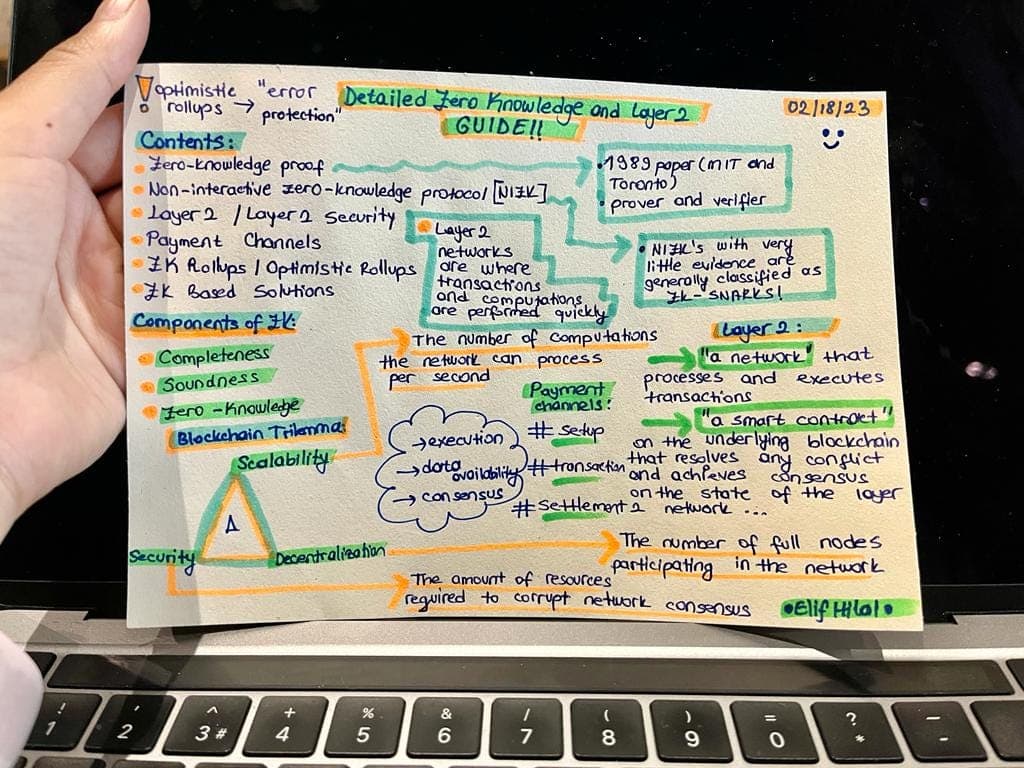 ! optimistic "error
rollups → protection"
Detailed Zero Knowledge and Layer 2
GUIDE!!
02/18/23
Contents:
• Zero-knowledge proof
• Non-interactive zero-knowledge protocol [NIZK]
• Layer 2 / Layer 2 Security
• Payment Channels
• ZK Rollups / Optimistic Rollups
• ZK Based Solutions
• 1989 paper (MIT and
Toronto)
• prover and verifier
• NIZK's with very
little evidence are
generally classified as
Zk-SNARKS!
• Layer 2
networks
are where
transactions
and computations
are performed quickly
Components of ZK:
• Completeness
• Soundness
• Zero-Knowledge
Blockchain Trilemma:
Scalability
Security
Decentralization
The number of computations
the network can process
per second
→ execution
→ data
availability
→ consensus
Payment
channels:
# setup
# transaction
# settlement
Layer 2:
→ "a network" that
processes and executes
transactions
→ "a smart contract"
on the underlying blockchain
that resolves any conflict
and achieves consensus
on the state of the layer
2 network ...
The number of full nodes
participating in the network
The amount of resources
required to corrupt network consensus
•Elif Hilal•
! 1
' 2
^ 3 #
+ 4
% 5
& 6
/ 7
( 8
) 9
= 0
? *
_ -